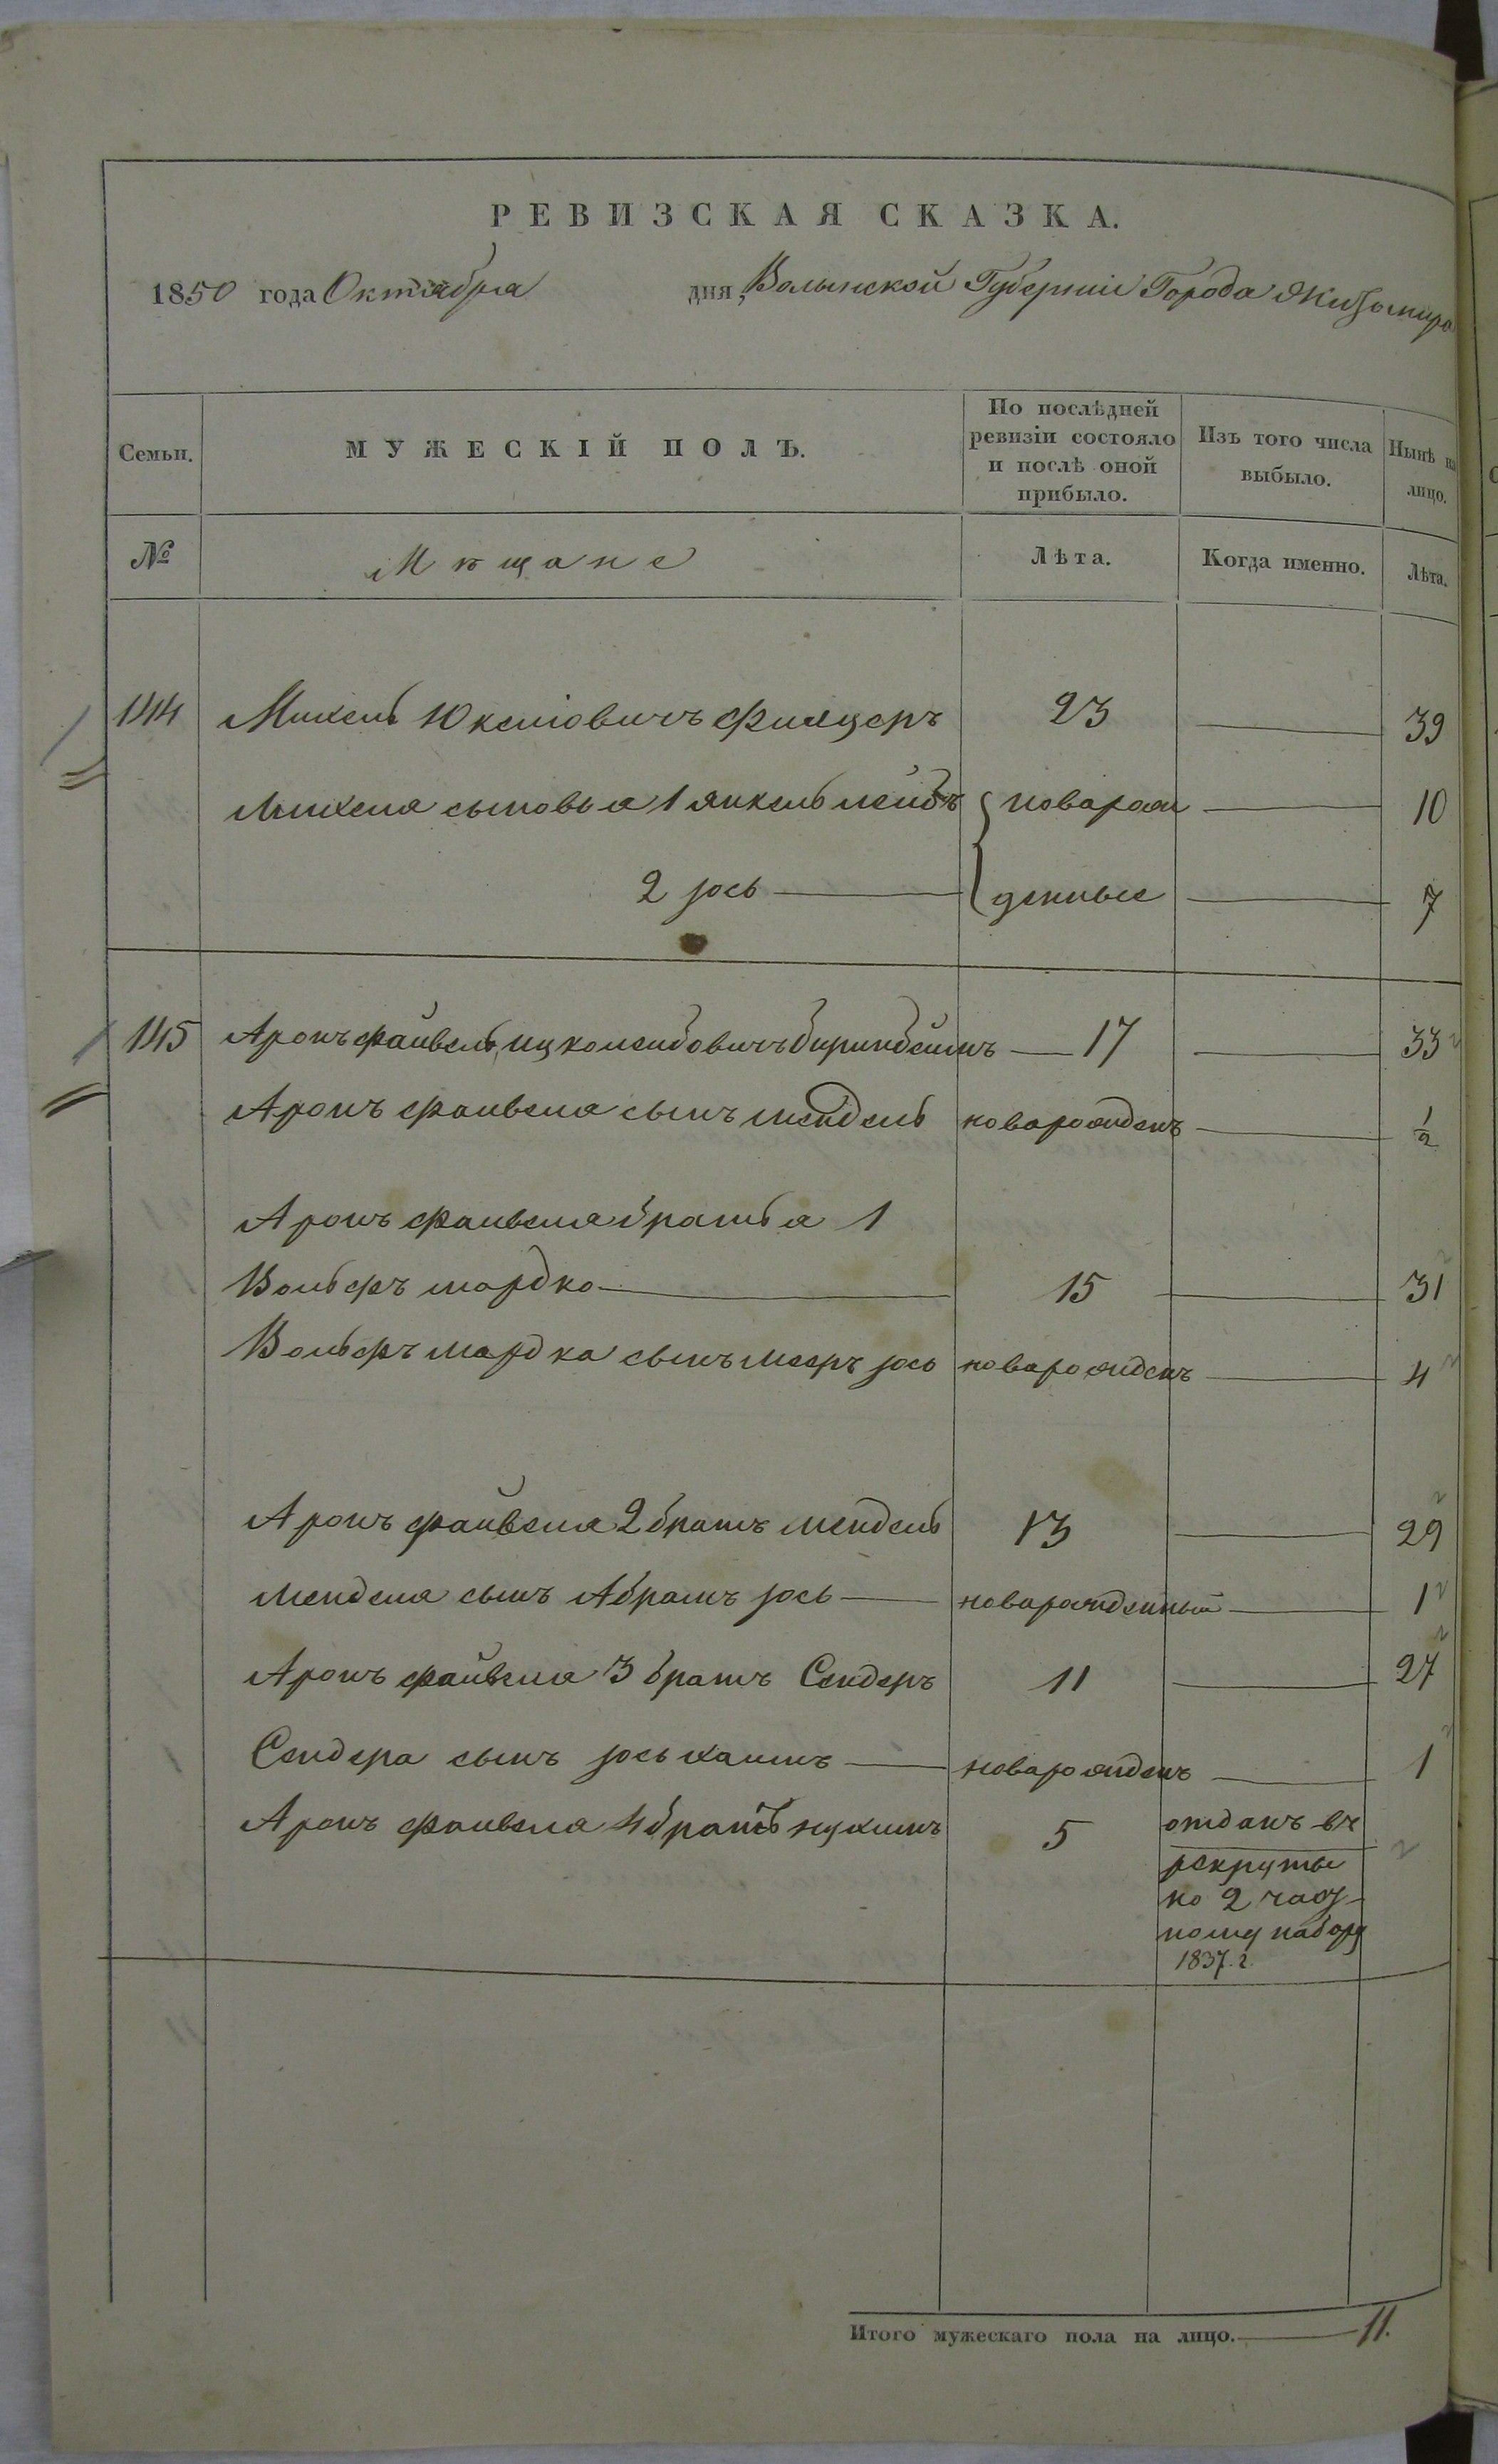 РЕВИЗСКАЯ СКАЗКА.
1850 года Октября дня, Волынской Губерніи Города Житомира
Семьи. МУЖЕСКІЙ ПОЛЪ. По послѣдней ревизіи состояло и послѣ оной прибыло. Изъ того числа выбыло. Нынѣ на лицо.
№ Мѣщане Лѣта. Когда именно. Лѣта.
144 Михель Юкелiовичъ Фил 23 39
Михеля сыновья 1 Янкель Лейбъ новорож 10
2 Iось денные 7
145 Аронъ Файвель Ицколейбовичъ 17 33
Аронъ Файвеля сынъ Мендель новорожденъ 1/2
Аронъ Файвеля братья 1
Вольфъ Мордко 15 31
Вольфъ Мордка сынъ Мееръ Iось новорожденъ 4
Аронъ Файвеля 2 братъ Мендель 13 29
Менделя сынъ Абрамъ Iось новорожденный 1
Аронъ Файвеля 3 братъ Сендеръ 11 27
Сендера сынъ Iось Хаимъ новорожденъ 1
Аронъ Файвеля 4 братъ Нухимъ 5 отданъ въ
рекруты
по 2 част-
ному набору
1837. г.
Итого мужескаго пола на лицо. 11.